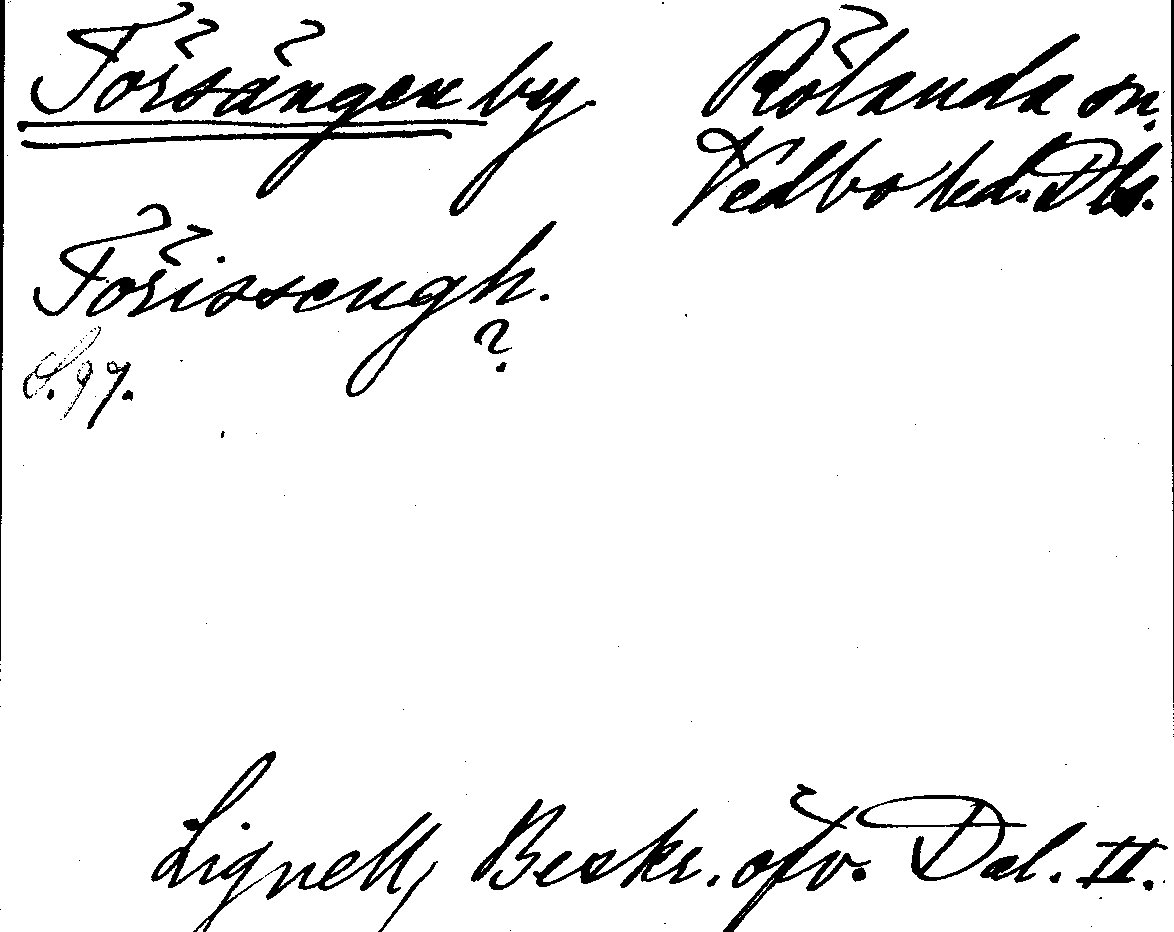 Torsängen by
Rölanda sn.
Vedbo hd. Dls.
Törissengh.
?
S. 97.
Lignell, Beskr. öfv. Dal. II.